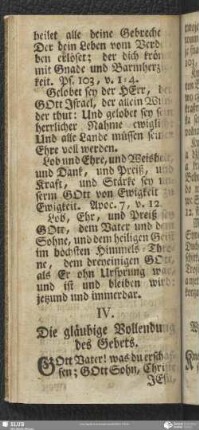 heilet alle deine Gebreche
Der dein Leben vom Verde
ben erlöset; der dich krön
mit Gnade und Barmherz
keit. Ps. 103, v. 1-4.
Gelobet sey der HErr,
GOtt Israel, der allein Wun
der thut: Und gelobet sey sein
herrlicher Nahme ewiglich
Und alle Lande müssen seiner
Ehre voll werden.
Lob und Ehre, und Weisheit,
und Dank, und Preiß, und
Kraft, und Stärke sey un
serm GOtt von Ewigkeit zu
Ewigkeit. Apoc. 7, v. 12
Lob, Ehr, und Preiß sey
GOtt, dem Vater und dem
Sohne, und dem heiligen Geist
im höchsten Himmels-Thro
ne, dem dreyeinigen GOtt,
als Er ohn Ursprung war
und ist und bleiben wird
jezund und immerdar.
IV.
Die gläubige Vollendung
des Gebets.
GOtt Vater! was du erschaf
fen; GOtt Sohn, Christe
JEsu,
SLUB